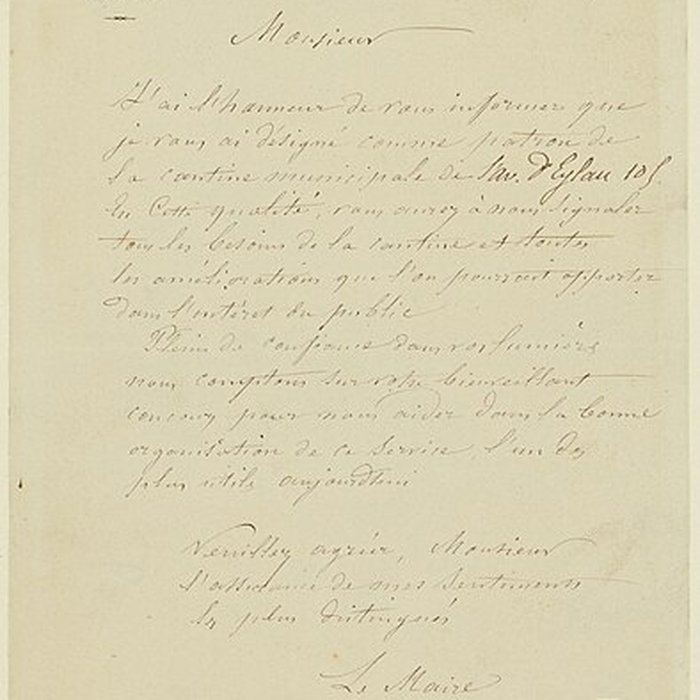 Monsieur
J'ai l'honneur de vous informer que
je vous ai désigné comme patron de
la cantine municipale de l'av. d'Eylau 105.
En cette qualité, vous aurez à nous signaler
tous les besoins de la cantine et toutes
les améliorations que l'on pourrait apporter
dans l'intérêt du public
Pleins de confiance dans vos lumières
nous comptons sur votre bienveillant
concours pour nous aider dans la bonne
organisation de ce service, l'un des
plus utiles aujourd'hui
Veuillez agréer, Monsieur
l'assurance de mes sentiments
les plus distingués
Le Maire